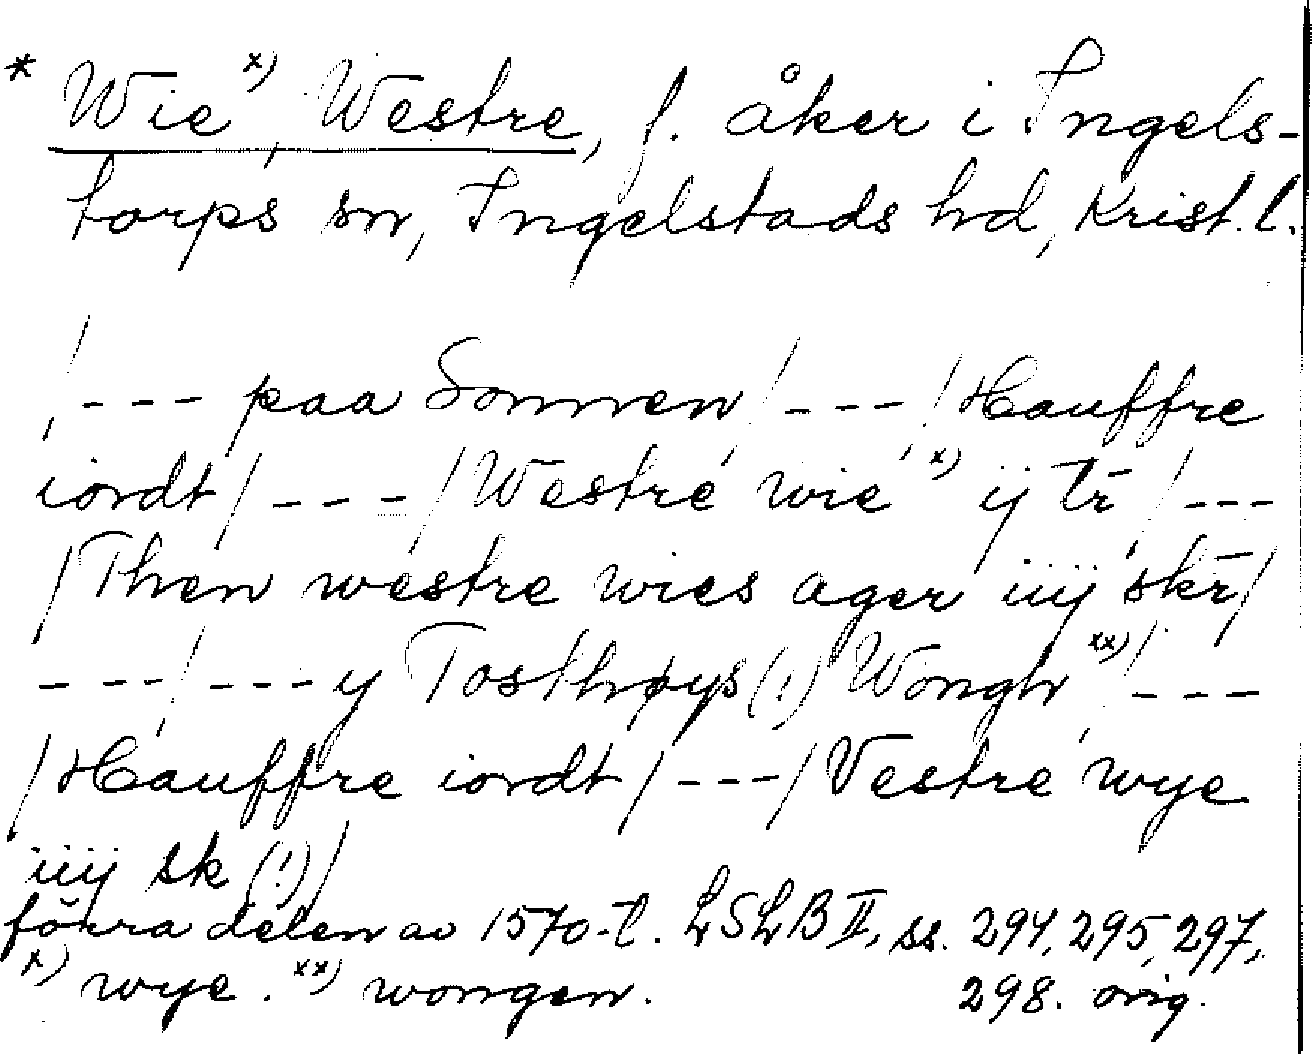 * Wie x), Westre, f. åker i Ingels-
torps sn, Ingelstads hd, Krist. l.
/--- paa Sonnen/---/Hauffre
iordt/---/Westre wie x) ij tr̄/---
/Then westre wies ager iiij skr̄/
---/---y Tosthøys(!) Wongh xx)/---
/Hauffre iordt/---/Vestre wye
iiij sk(!)/
förra delen av 1570-t. LSLB II, ss. 294, 295, 297,
x) wye. xx) wongen. 298. orig.